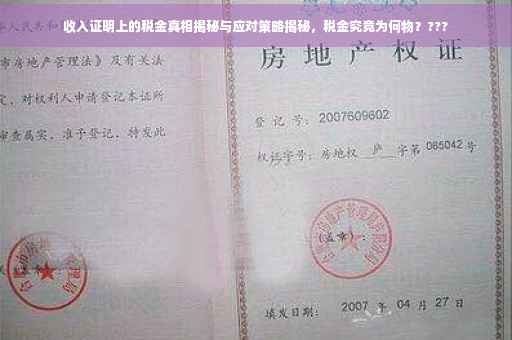 收入证明上的税金真相揭秘与应对策略揭秘，税金究竟为何物？???
华人民共和国
市房地产管理法》及有关法
定，对权利人申请登记本证所
审查属实，准予登记，特发此
房地产权证
登记号：2007609602
权证字号：房地权 庐 字第 065042 号
(盖章)：
填发日期：2007 年 04 月 27 日